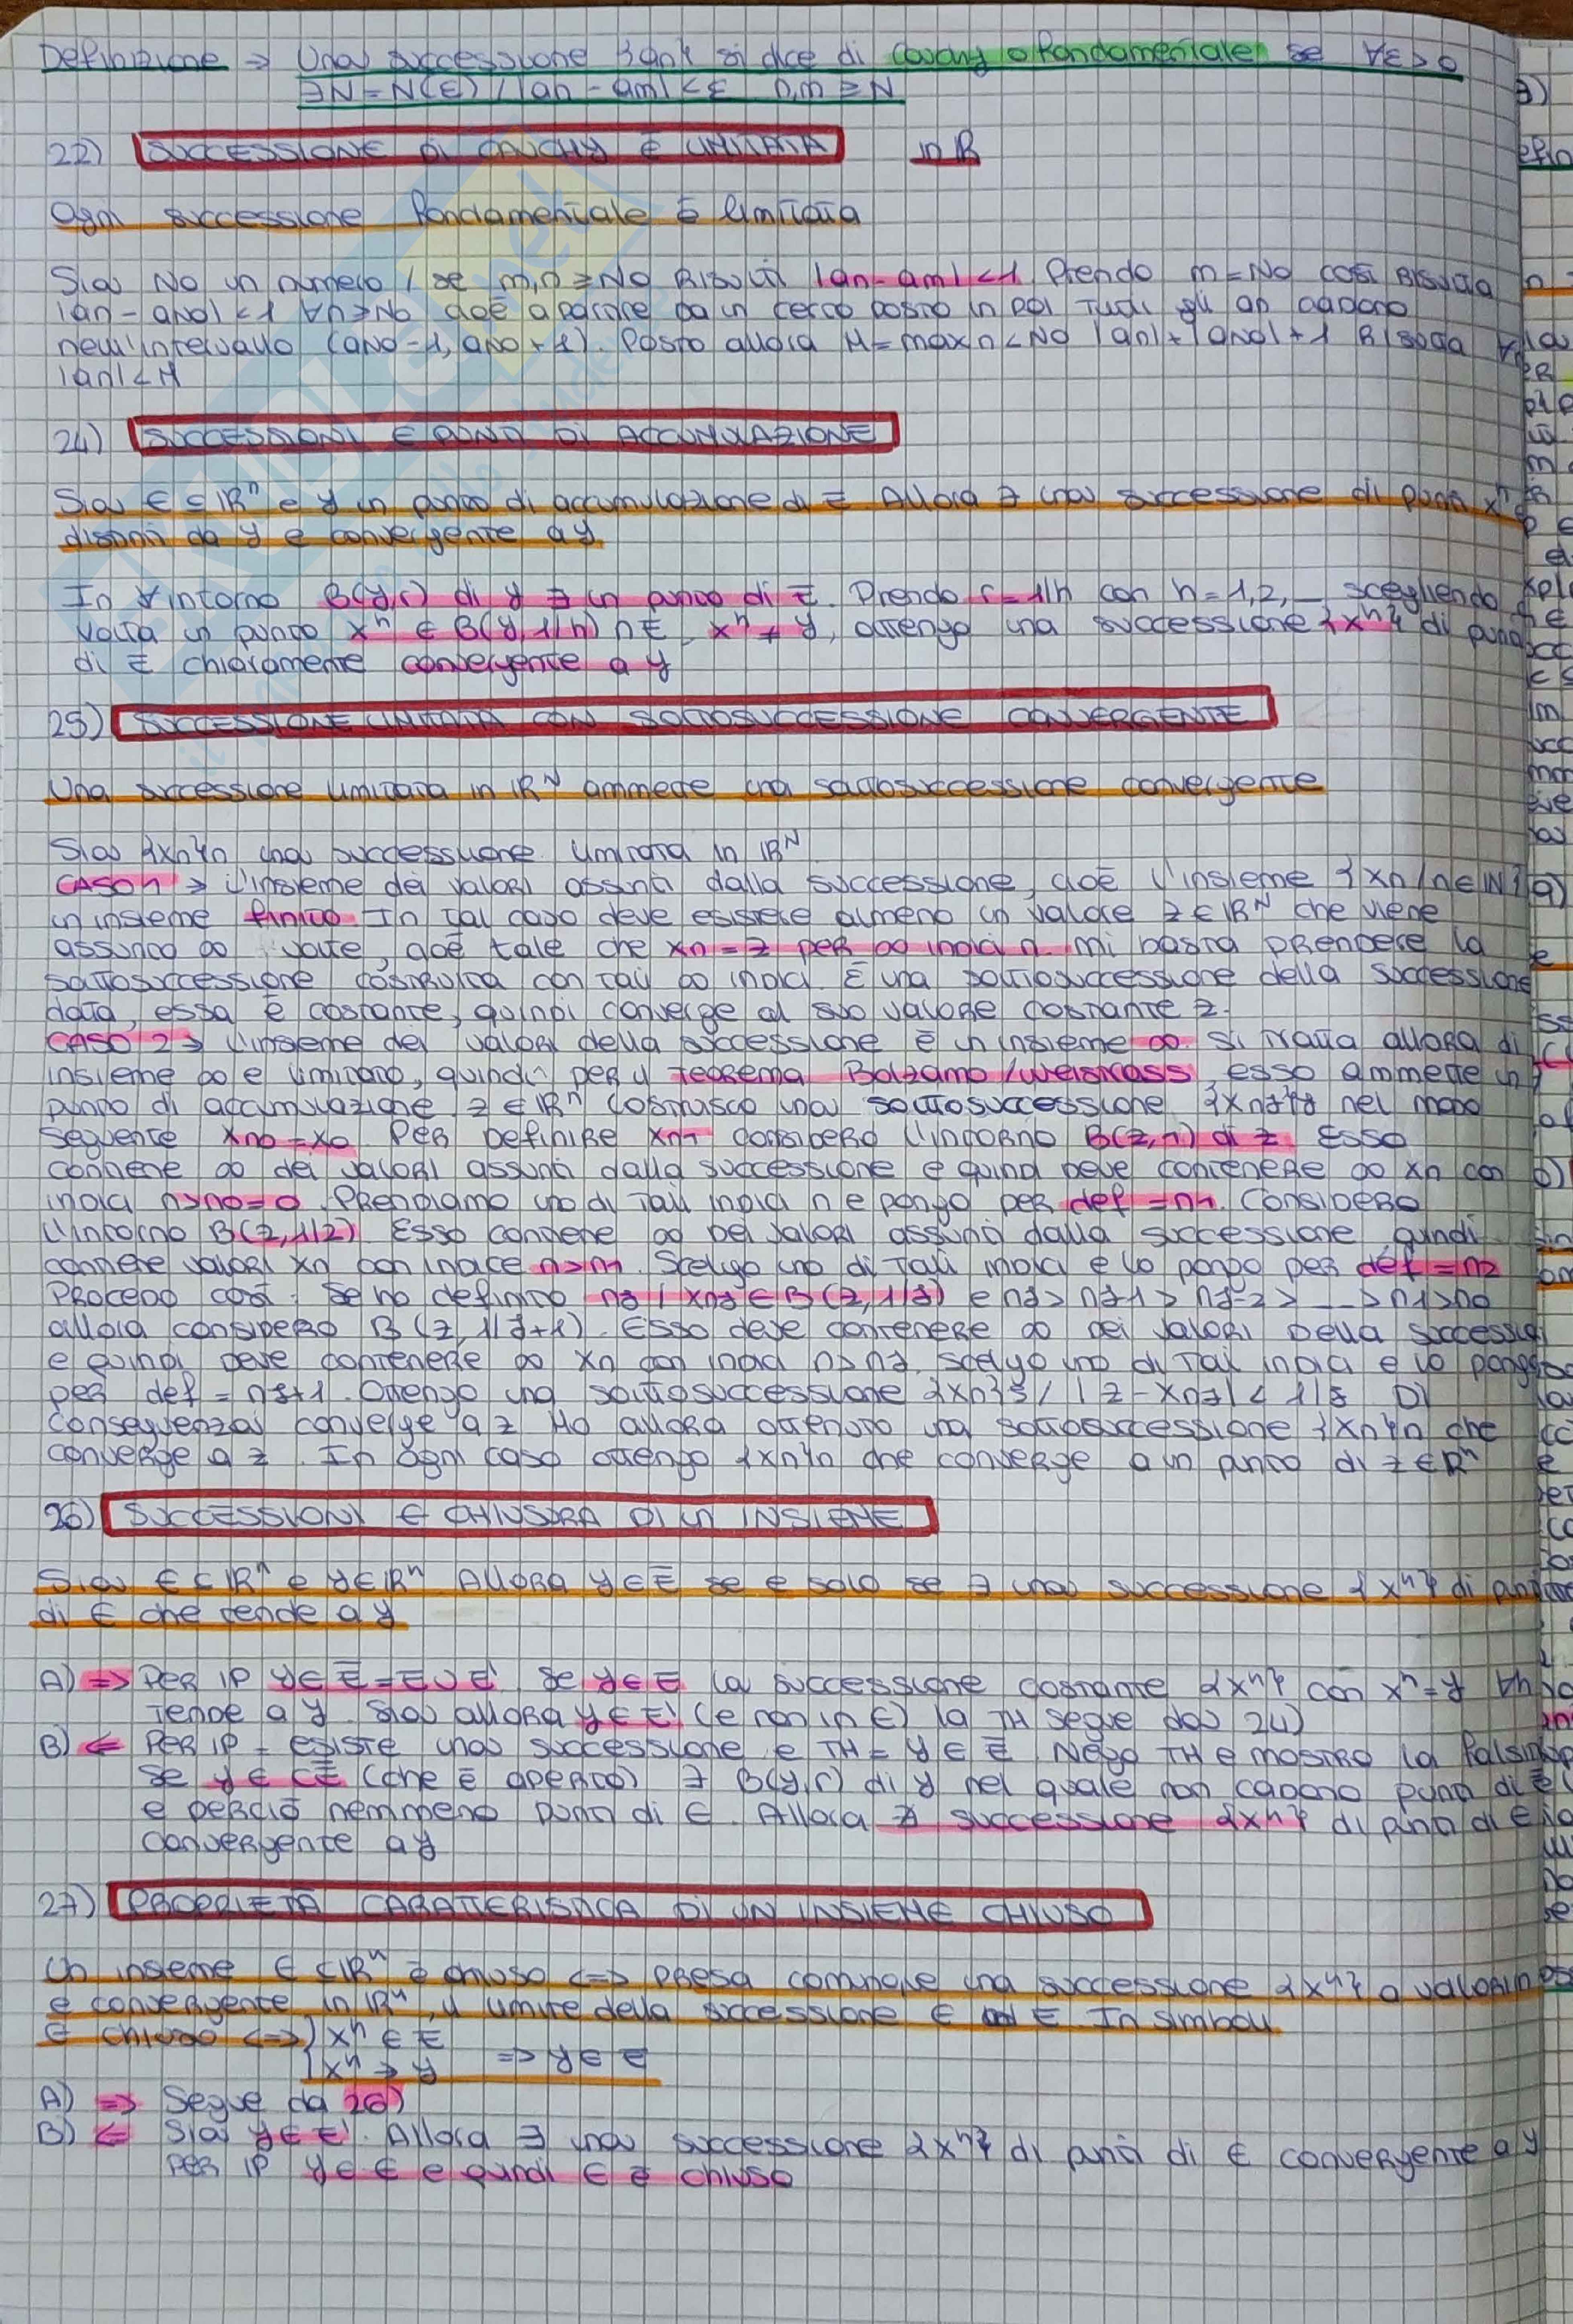 Definizione ⇒ Una successione {an} si dice di Cauchy o fondamentale se ∀ε>0
∃N=N(ε) / |an - am| < ε n,m ≥ N
22) SUCCESSIONE DI CAUCHY È LIMITATA in R
Ogni successione fondamentale è limitata
Sia No un numero / se m,n ≥ No Risulti |an - am| < 1 Prendo m = No così Risulta
|an - aNo| < 1 ∀n ≥ No cioè a partire da un certo posto in poi tutti gli an cadono
nell'intervallo (aNo - 1, aNo + 1). Posto allora M = max n < No |an| + |aNo| + 1 Risulta
|an| < M
24) SUCCESSIONI E PUNTI DI ACCUMULAZIONE
Sia E ⊆ IRⁿ e y un punto di accumulazione di E Allora ∃ una successione di punti xⁿ
distinti da y e convergente a y
In ∀ intorno B(y,r) di y ∃ un punto di E. Prendo r = 1/n con n = 1,2,... scegliendo
volta un punto xⁿ ∈ B(y, 1/n) ∩ E, xⁿ ≠ y, ottengo una successione {xⁿ} di punti
di E chiaramente convergente a y
25) SUCCESSIONE LIMITATA CON SOTTOSUCCESSIONE CONVERGENTE
Una successione limitata in IRᴺ ammette una sottosuccessione convergente
Sia {xn}n una successione limitata in IRᴺ
CASO 1 → L'insieme dei valori assunti dalla successione, cioè l'insieme {xn / n ∈ IN}
un insieme finito. In tal caso deve esistere almeno un valore z ∈ IRᴺ che viene
assunto ∞ volte, cioè tale che xn = z per ∞ indici n. mi basta prendere la
sottosuccessione costruita con tali ∞ indici. È una sottosuccessione della successione
data, essa è costante, quindi converge al suo valore costante z.
CASO 2 → L'insieme dei valori della successione è un insieme ∞. Si tratta allora di
insieme ∞ e limitato, quindi per il teorema Bolzamo/Weistrass, esso ammette un
punto di accumulazione z ∈ IRⁿ Costruisco una sottosuccessione {xnj}j nel modo
seguente xn0 = x0. Per definire xn1 considero l'intorno B(z,1) di z. Esso
contiene ∞ dei valori assunti dalla successione e quindi deve contenere ∞ xn con
indici n>n0=0. Prendiamo uno di tali indici n e pongo per def = n1. Considero
l'intorno B(z,1/2). Esso contiene ∞ dei valori assunti dalla successione quindi
contiene valori xn con indice n>n1. Scelgo uno di tali indici e lo pongo per def = n2
Procedo così: Se ho definito nj / xnj ∈ B(z,1/j) e nj > nj-1 > nj-2 > ... > n1 > n0
allora considero B(z, 1/j+1). Esso deve contenere ∞ dei valori della
e quindi deve contenere ∞ xn con indici n>nj. scelgo uno di tali indici e lo pongo
per def = nj+1. Ottengo una sottosuccessione {xn}j / |z - xnj| < 1/j Di
conseguenza converge a z Ho allora ottenuto una sottosuccessione {xn}n che
converge a z. In ogni caso ottengo {xn}n che converge a un punto di z ∈ Rⁿ
26) SUCCESSIONI E CHIUSURA DI UN INSIEME
Sia E ⊆ IRⁿ e y ∈ IRⁿ Allora y ∈ E̅ se e solo se ∃ una successione {xⁿ} di punti
di E che tende a y
A) ⇒ Per ip y ∈ E̅ = E ∪ E' Se y ∈ E la successione costante {xⁿ} con xⁿ = y ∀n
tende a y. Sia allora y ∈ E' (e non in E) la TH segue da 24)
B) ⇐ Per ip = esiste una successione e TH = y ∈ E̅ Nego TH e mostro la
Se y ∈ CE̅ (che è aperto) ∃ B(y,r) di y nel quale non cadono punti di E̅
e perciò nemmeno punti di E. Allora ∄ successione {xⁿ} di punti di E
convergente a y
27) PROPRIETÀ CARATTERISTICA DI UN INSIEME CHIUSO
Un insieme E ⊆ IRⁿ è chiuso ⇔ presa comunque una successione {xⁿ} a valori in
e convergente in IRⁿ, il limite della successione ∈ E. In simboli
E chiuso ⇔ { xⁿ ∈ E
{ xⁿ → y ⇒ y ∈ E
A) ⇒ Segue da 26)
B) ⇐ Sia y ∈ E'. Allora ∃ una successione {xⁿ} di punti di E convergente a y
per ip y ∈ E e quindi E è chiuso